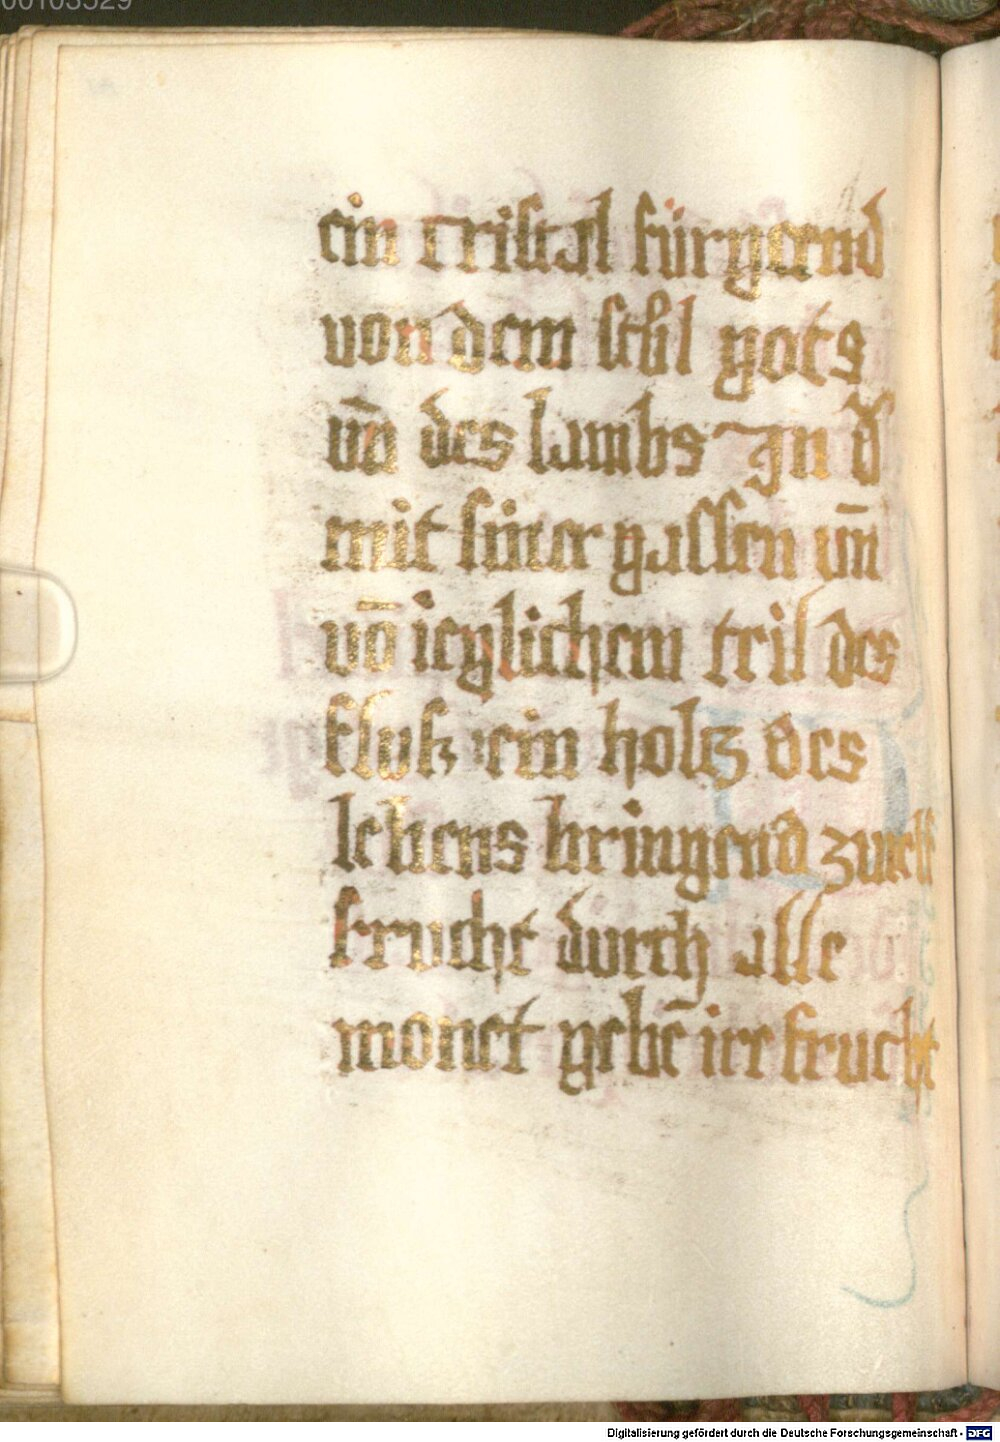 00103529
ein cristal fürgeend
von dem stůl gots
vn̄ des lambs Jn d͛
mit siner gassen vn̄
vō ieglichem teil des
fluß ein holtz des
lebens bringend zwelf
frucht durch alle
monet gebē ire frucht
Digitalisierung gefördert durch die Deutsche Forschungsgemeinschaft - DFG